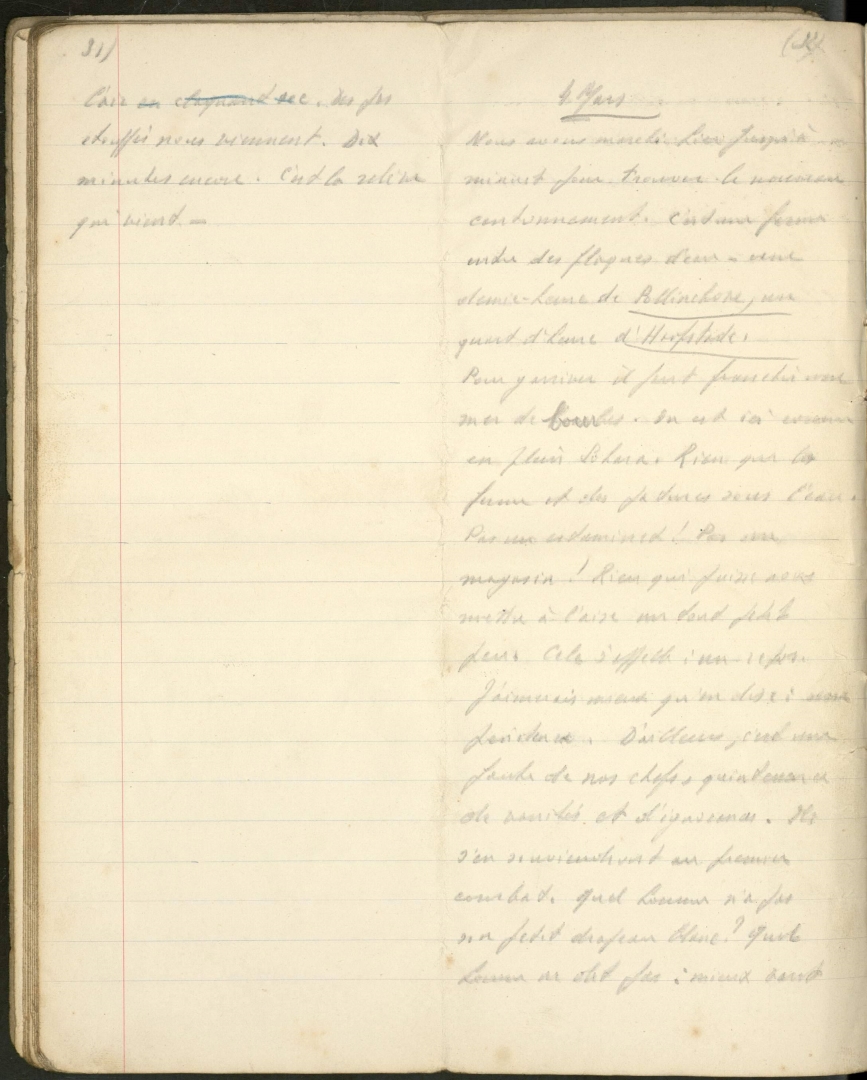 31)
l'air en claquant sec. Des pas
étouffés nous viennent. Dix
minutes encore. C'est la relève
qui vient. –
4 Mars
Nous avons marché hier jusqu'à
minuit pour trouver le nouveau
cantonnement. C'est une ferme
entre des flaques d'eau – une
demie-heure de Pollinchove, un
quart d'heure d'Hoofstade.
Pour y arriver il faut franchir une
mer de boues. On est ici comme
en plein Sahara. Rien que la
ferme et des patures sous l'eau.
Pas un estaminet! Pas un
magasin! Rien qui puisse nous
mettre à l'aise un tout petit
peu. Cela s'appelle : un repos.
J'aimerais mieux qu'on dise : une
pénitence. D'ailleurs, c'est une
faute de nos chefs,
de vanités et d'ignorance. Ils
s'en souviendront au premier
combat. Quel homme n'a pas
son petit drapeau blanc? Quel
homme ne dit pas : mieux vaut